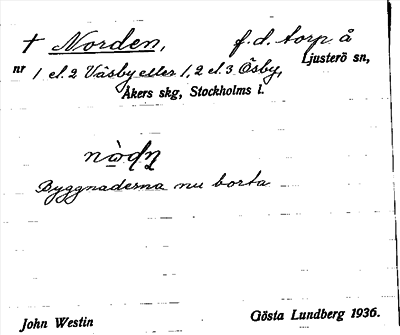 † Norden, f.d. torp å
Ljusterö sn,
nr 1 el. 2 Väsby eller 1, 2 el. 3 Ösby,
Åkers skg, Stockholms l.
Byggnaderna nu borta
John Westin Gösta Lundberg 1936.